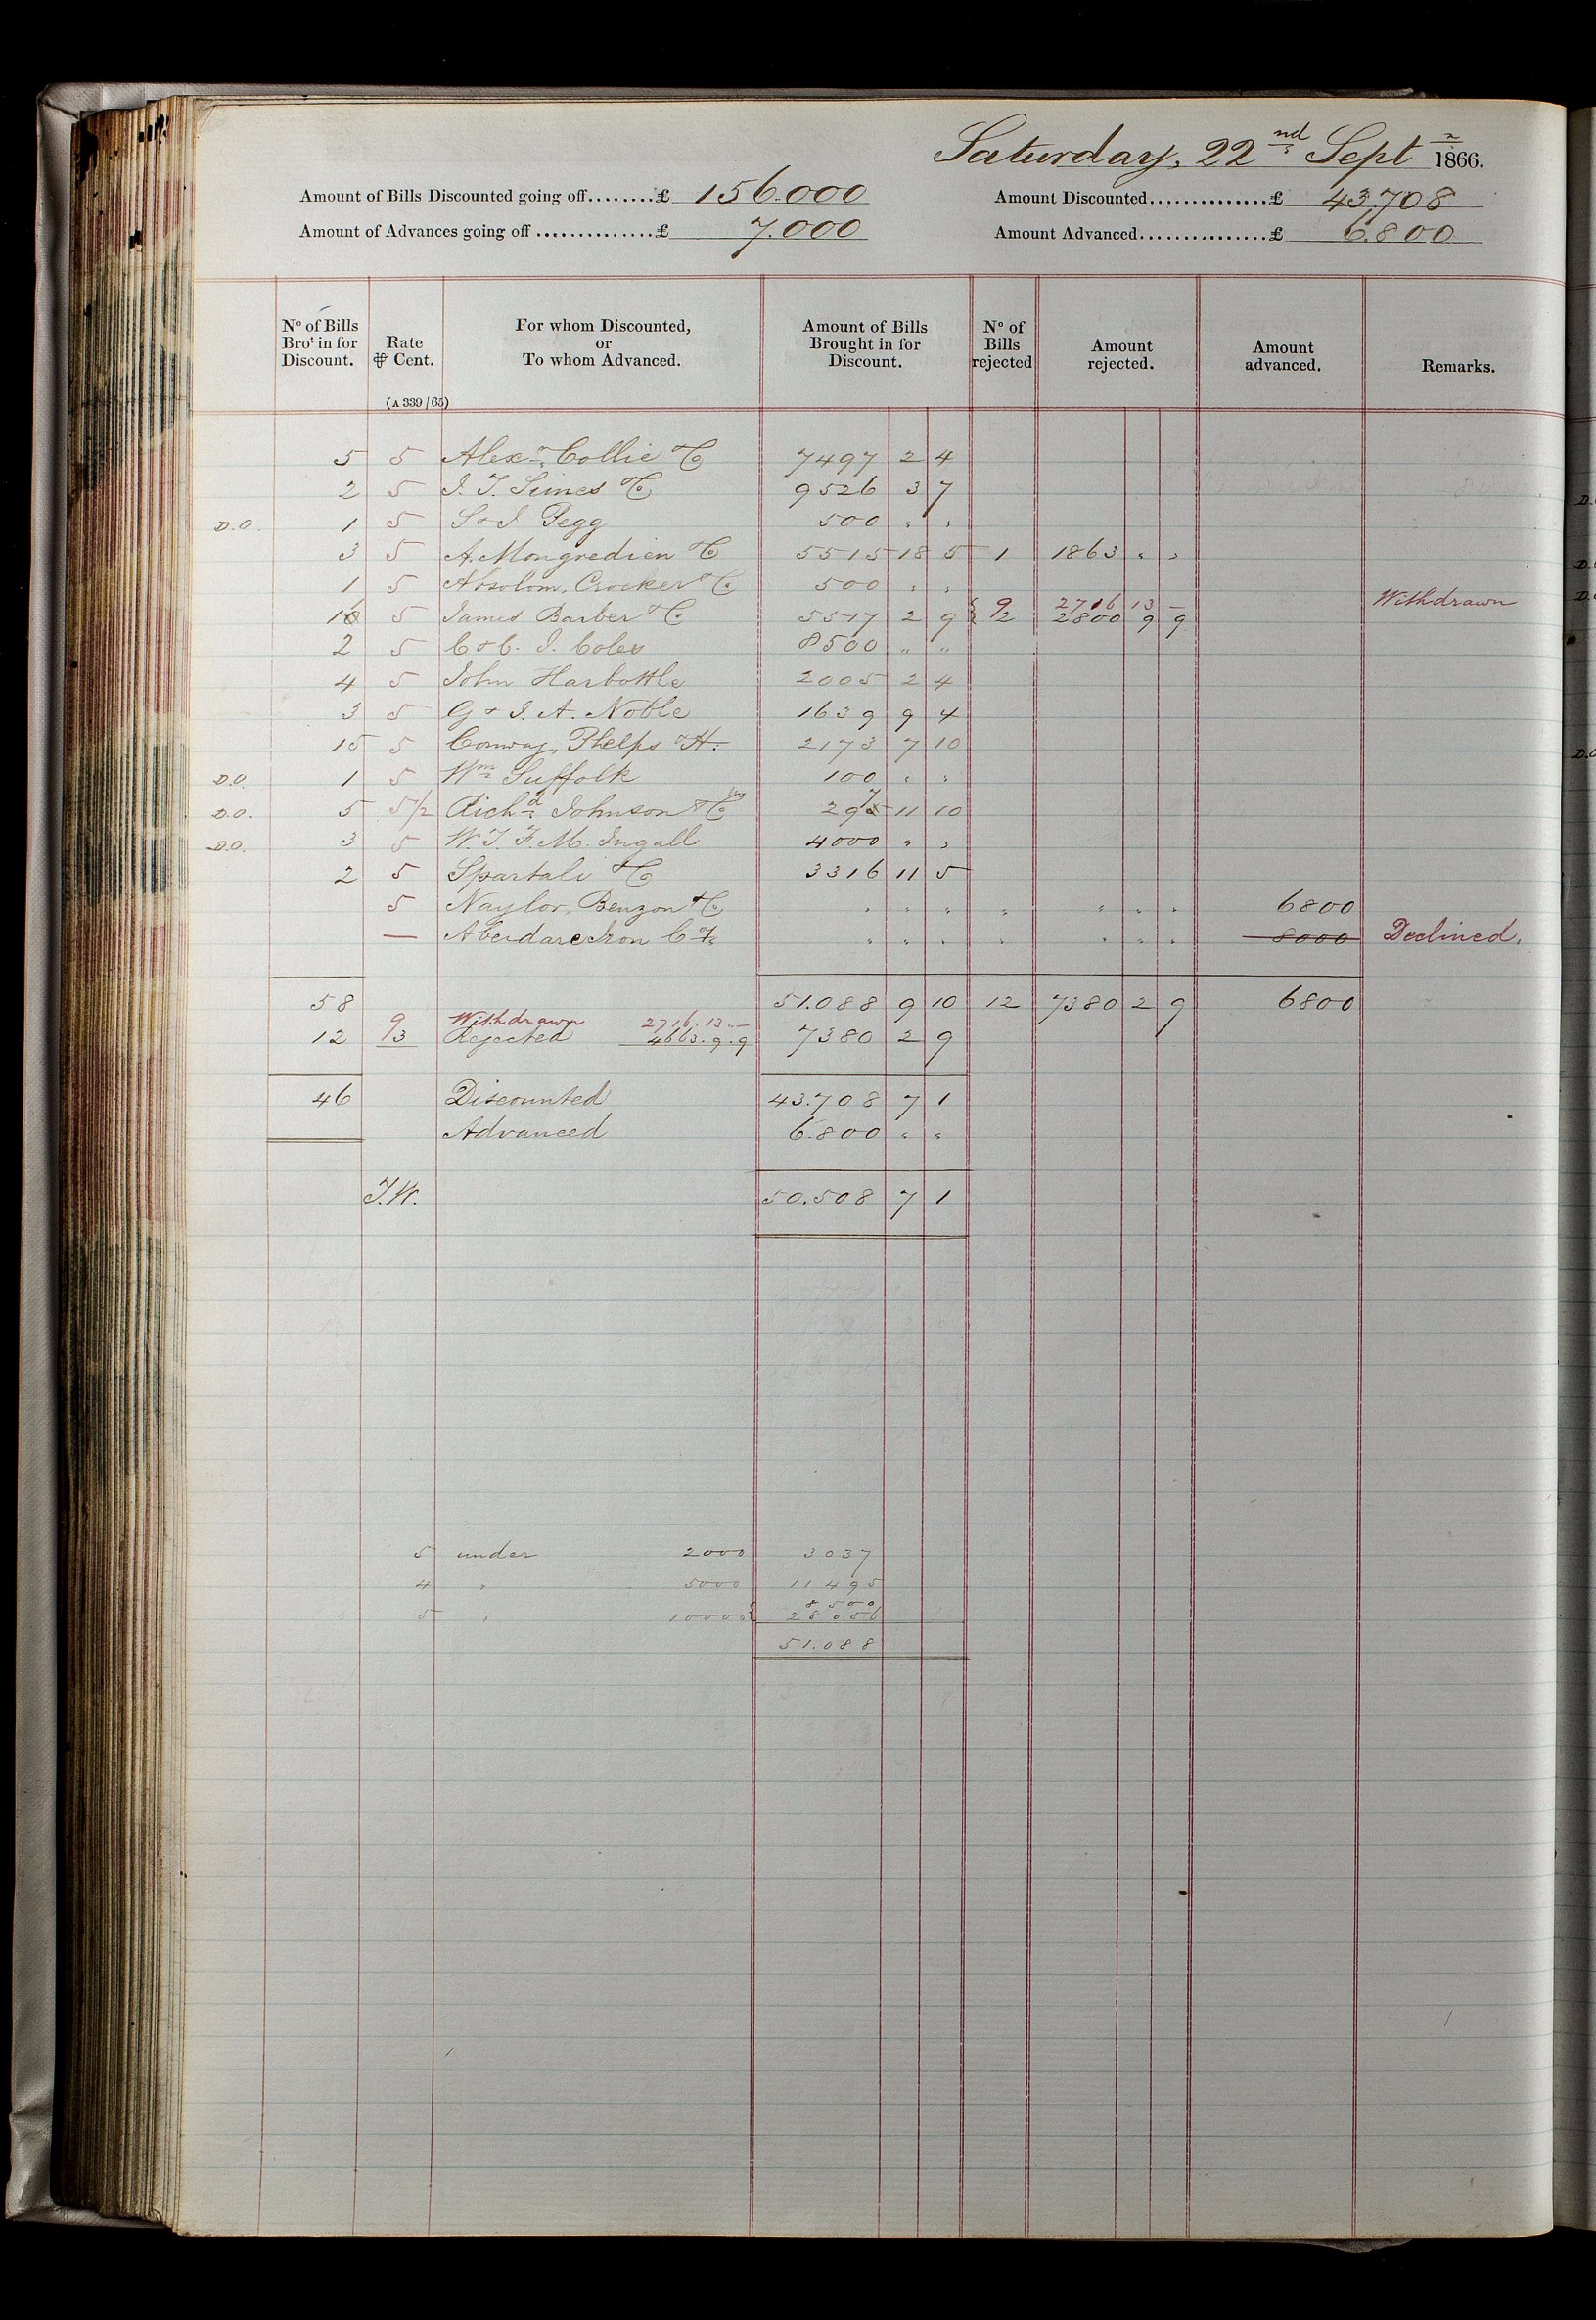 Saturday, 22nd Septr 1866.
Amount of Bills Discounted going off........£ 156.000 Amount Discounted..............£ 43.708
Amount of Advances going off ..............£ 7.000 Amount Advanced...............£ 6.800
No of Bills Brot in for Discount. Rate ⅌ Cent. For whom Discounted, or To whom Advanced. Amount of Bills Brought in for Discount. No of Bills rejected Amount rejected. Amount advanced. Remarks.
(A 339/65)
5 5 Alexr Collie & Co 7497 2 4
2 5 J. T. Simes & Co 9526 3 7
D.O. 1 5 S & J Pegg 500 " "
3 5 A. Mongredien & Co 5515 18 5 1 1863 " "
1 5 Absolom, Crocker & Co 500 " "
9 2716 13 – Withdrawn
11 5 James Barber & Co 5517 2 9 2 2800 9 9
2 5 C & C. J. Coles 8500 " "
4 5 John Harbottle 2005 2 4
3 5 G & J. A. Noble 1639 9 4
15 5 Conway, Phelps & H. 2173 7 10
D.O. 1 5 Wm Suffolk 100 " "
D.O. 5 5/2 Richd Johnson & Co 297 11 10
D.O. 3 5 W. T. F. M. Ingall 4000 " "
2 5 Spartali & Co 3316 11 5
5 Naylor, Benzon & Co " " " " " " " 6800
— Aberdare Iron Co " " " " " " " 8000 Declined.
58 51.088 9 10 12 7380 2 9 6800
9 Withdrawn 2716.13.–
12 3 Rejected 4663.9.9 7380 2 9
46 Discounted 43.708 7 1
Advanced 6.800 " "
T.W. 50.508 7 1
5 under 2000 3037
4 " 5000 11495
8500
5 " 10000 28056
51.088